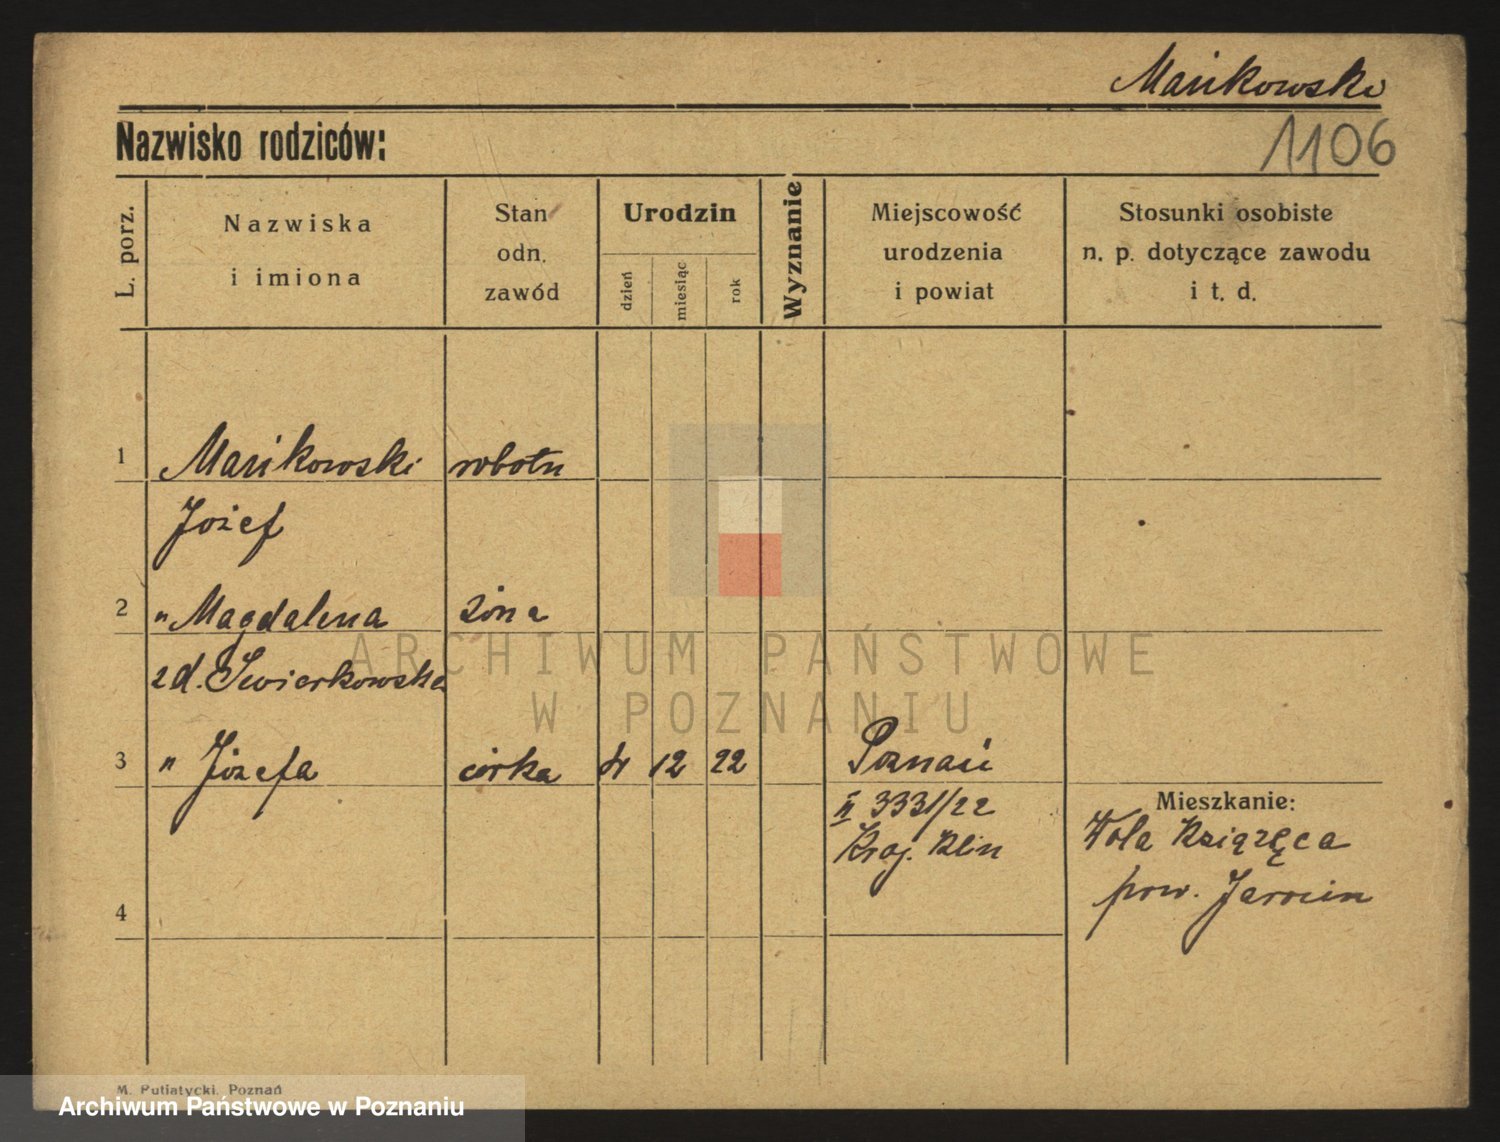 Mańkowski
Nazwisko rodziców:
1106
L. porz.
Nazwiska
i imiona
Stan
odn.
zawód
Urodzin
dzień
miesiąc
rok
Wyznanie
Miejscowość
urodzenia
i powiat
Stosunki osobiste
n. p. dotyczące zawodu
i t. d.
1 Mańkowski robotn
Józef
2 " Magdalena żona
zd. Świerkowska
3 " Józefa córka 4 12 22 Poznań
II 3331/22
Kraj. Klin
Mieszkanie:
Wola Książęca
pow. Jarocin
4
ARCHIWUM PAŃSTWOWE
W POZNANIU
M. Putiatycki, Poznań
Archiwum Państwowe w Poznaniu